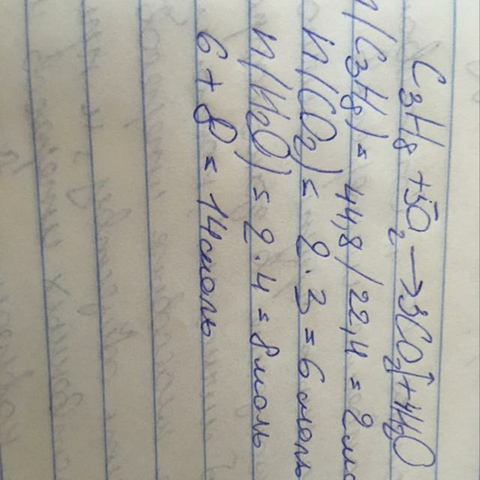 C₃H₈ + 5O₂ → 3CO₂↑ + 4H₂O
n(C₃H₈) = 44,8/22,4 = 2 мо
n(CO₂) = 2·3 = 6 моль
n(H₂O) = 2·4 = 8 моль
6 + 8 = 14 моль